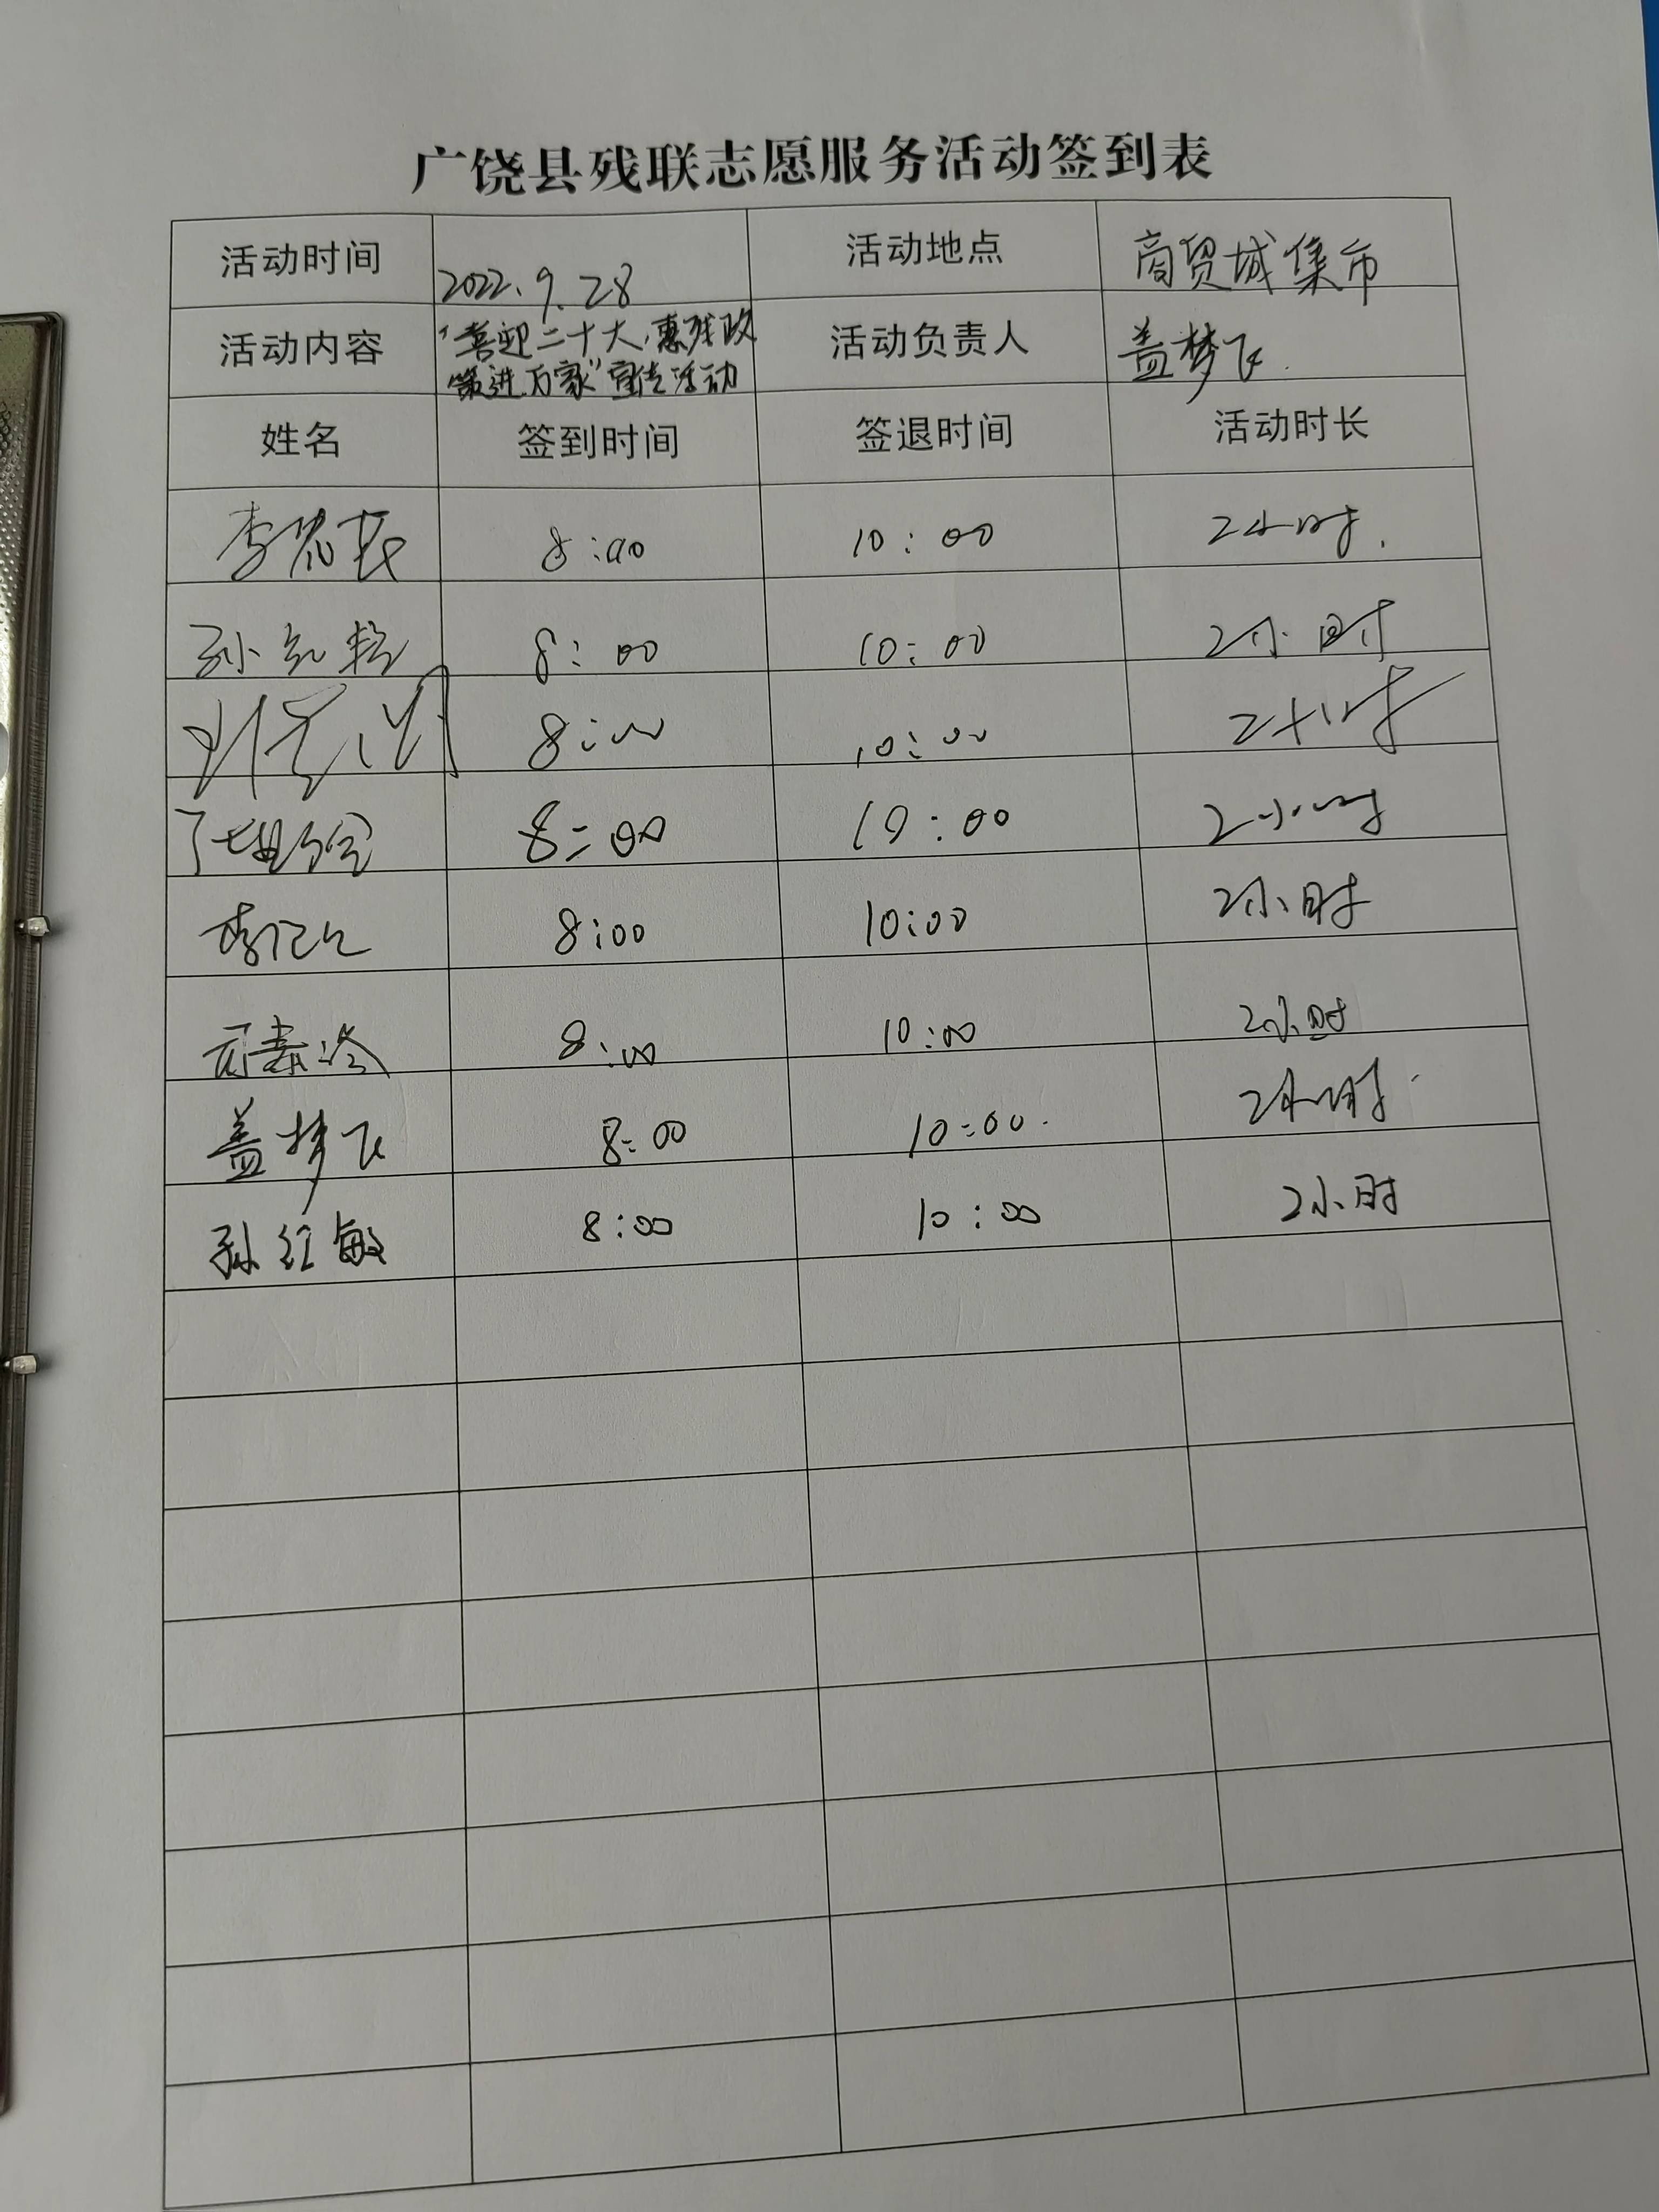 广饶县残联志愿服务活动签到表
活动时间 2022.9.28 活动地点 商贸城集市
活动内容 "喜迎二十大,惠残政策进万家"宣传活动 活动负责人 盖梦飞
姓名 签到时间 签退时间 活动时长
李 8:00 10:00 2小时.
孙 8:00 10:00 2小时
刘 8:00 10:00 2小时
8:00 10:00 2小时
李 8:00 10:00 2小时
8:00 10:00 2小时
盖梦飞 8:00 10:00. 2小时
孙红敏 8:00 10:00 2小时